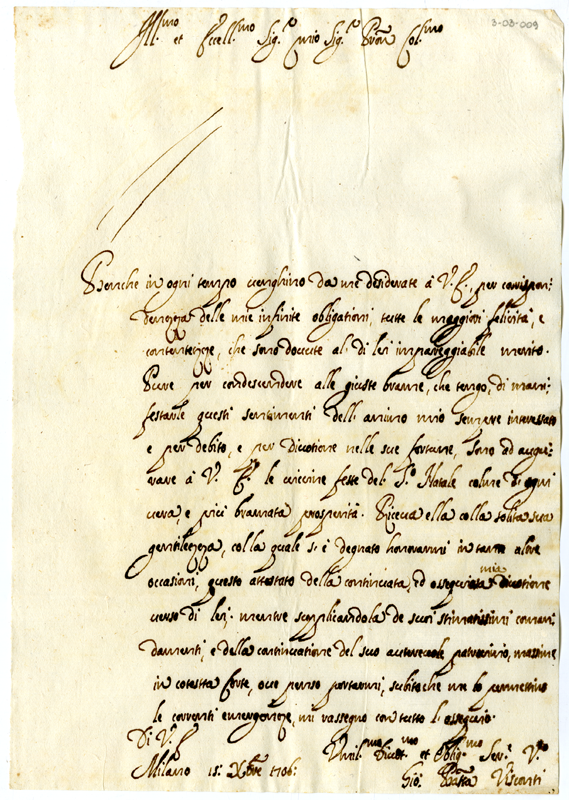 3-03-009
Ill.mo et Eccell.mo Sig.r mio Sig.r Pron Col.mo
Benche in ogni tempo venghino da me desiderate à V. E., per corrispon:
denza delle mie infinite obligationi, tutte le maggiori felicità, e
contentezze, che sono dovute al di lei impareggiabile merito.
Pure per condescendere alle giuste brame, che tengo, di mani:
festarle questi sentimenti dell'animo mio sempre interessato
e per debito, e per divotione nelle sue fortune, sono ad augu:
rare à V. E. le vicine feste del S.o Natale colme di ogni
vera, e più bramata prosperità. Riceva ella colla solita sua
gentilezza, colla quale s'è degnato honorarmi in tante altre
occasioni, questo attestato della continuata, ed ossequiosa mia divotione
verso di lei. mentre supplicandola de suoi stimatissimi coman:
damenti, e della continuatione del suo autorevole patrocinio, massime
in cotesta Corte, ove penso portarmi, subito che me lo permettino
le correnti emergenze, mi rassegno con tutto l'ossequio.
Di V. E.
Milano 15: Xbre 1706:
Umil.mo Divot.mo et Oblig.mo Ser.e V.ro
Gio: Batta Visconti